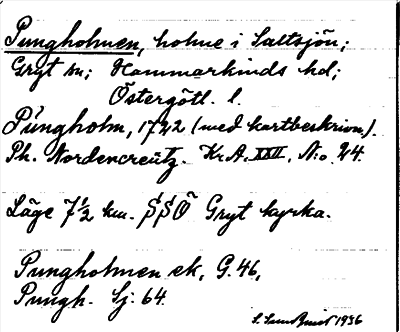 Pungholmen, holme i Saltsjön;
Gryt sn; Hammarkinds hd;
Östergötl. l.
Púngholm, 1722 (med kartbeskrivn.).
Ph. Nordencreütz. Kr.A. XXII. N:o 24.
Läge 7½ km. SSÖ Gryt kyrka.
Pungholmen ek, G. 46,
Pungh. Sj. 64.
1936